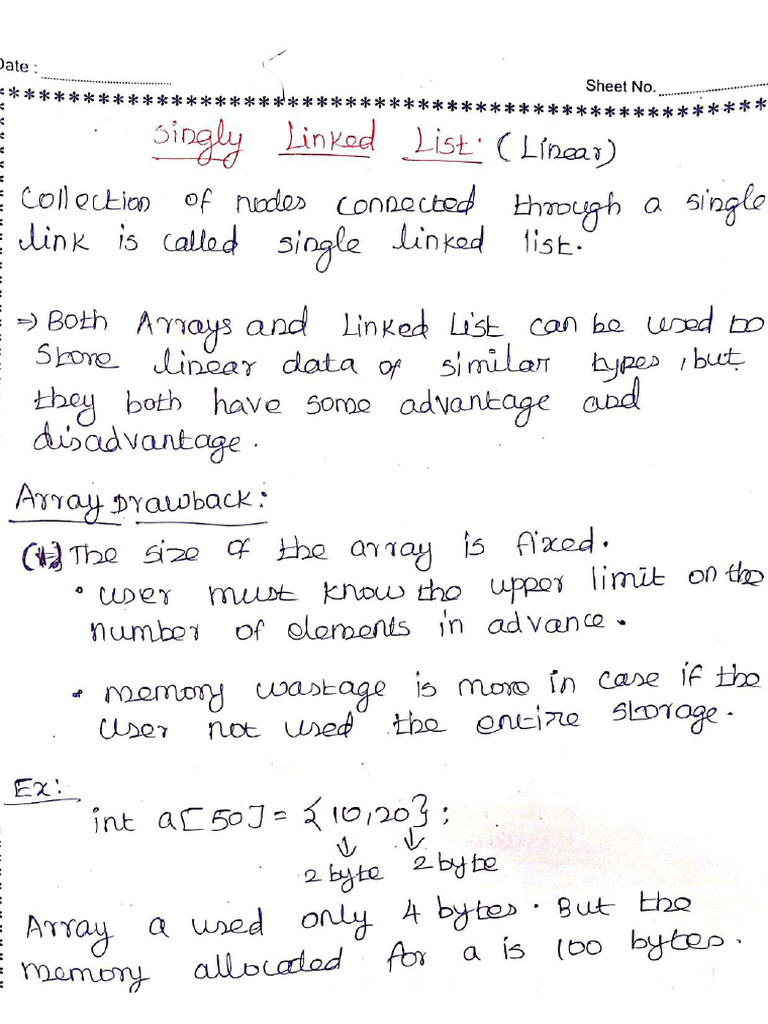 Date :
Sheet No.
Singly Linked List. (Linear)
Collection of nodes connected through a single
link is called single linked list.
⇒ Both Arrays and Linked List can be used to
store linear data of similar types, but
they both have some advantage and
disadvantage.
Array Drawback:
(1) The size of the array is fixed.
• user must know the upper limit on the
number of elements in advance.
• memory wastage is more in case if the
user not used the entire storage.
Ex:
int a[50] = {10,20};
↓ ↓
2 byte 2 byte
Array a used only 4 bytes. But the
memory allocated for a is 100 bytes.